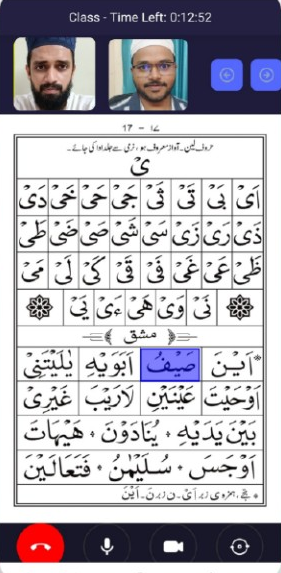 Class - Time Left: 0:12:52
17 - ١٧
حروف لین۔ آواز معروف ہو، نرمی سے جلد ادا کی جائے۔
یْ
اَیْ بَیْ تَیْ ثَیْ جَیْ حَیْ خَیْ دَیْ
ذَیْ رَیْ زَیْ سَیْ شَیْ صَیْ ضَیْ طَیْ
ظَیْ عَیْ غَیْ فَیْ قَیْ کَیْ لَیْ مَیْ
نَیْ وَیْ هَیْ ءَیْ یَیْ
مشق
*اَیْنَ صَیْفُ اَبَوَیْهِ یٰلَیْتَنِیْ
اَوْحَیْتَ عَیْنَیْنِ لَارَیْبَ غَیْرِیْ
بَیْنَ یَدَیْهِ ۰ یُنَادَوْنَ ۰ هَیْهَاتَ
اَوْجَسَ ۰ سُلَیْمٰنُ ۰ فَتَعَالَیْنَ
* ہجے، ہمزہ ی زبر اَیْ۔ ن زبر نَ۔ اَیْنَ